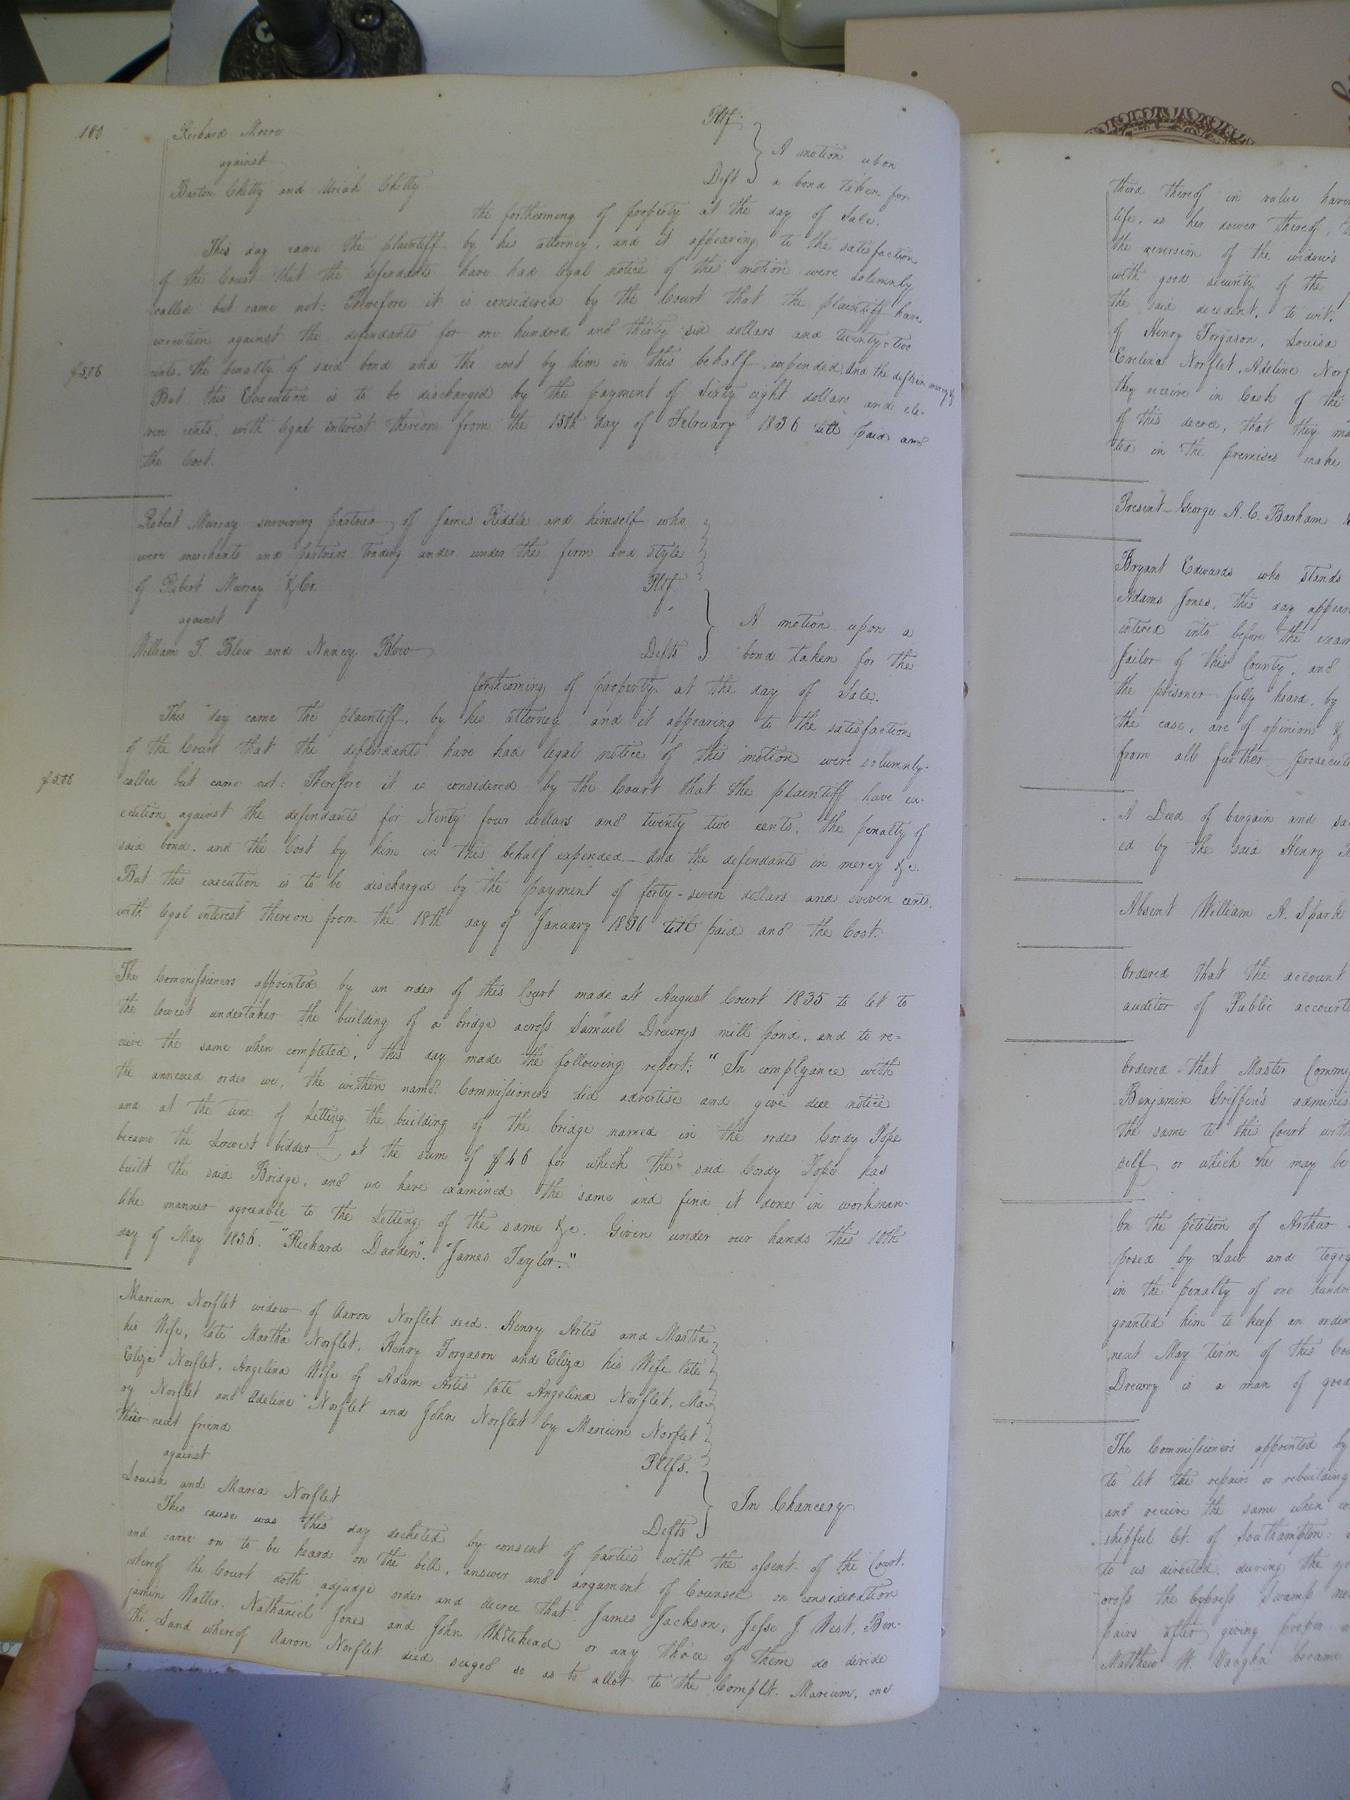 180
Richard Moore Pltf.
against
Barton Chitty and Uriah Chitty Deft
A motion upon
a bond taken for
the forthcoming of property at the day of Sale.
This day came the Plaintiff by his attorney, and it appearing to the satisfaction
of the Court that the defendants have had legal notice of this motion were solemnly
called but came not: Therefore it is considered by the Court that the plaintiff have
execution against the defendants for one hundred and thirty six dollars and twenty-two
cents, the penalty of said bond and the cost by him in this behalf expended, and the defts in mercy &
$5.06
But this Execution is to be discharged by the payment of Sixty eight dollars and ele-
ven cents, with legal interest thereon from the 15th day of February 1836 till paid and
the Cost.
Robert Murray surviving partner of James Riddle and himself who
were merchants and partners trading under under the firm and style
of Robert Murray & Co. Pltf
against
William T. Blow and Nancy Blow Defts
A motion upon a
bond taken for the
forthcoming of property at the day of Sale.
This day came the plaintiff, by his attorney and it appearing to the satisfaction
of the Court that the defendants have had legal notice of this motion were solumnly
$5.06
called but came not: Therefore it is considered by the Court that the plaintiff have ex-
ecution against the defendants for Ninty four dollars and twenty two cents, the penalty of
said bond, and the Cost by him in this behalf expended and the defendants in mercy &c.
But this execution is to be discharged by the payment of forty-seven dollars and eveven cents,
with legal interest thereon from the 18th day of January 1836 till paid and the Cost.
The Commissioners appointed by an order of this Court made att August Court 1835 to let to
the lowest undertaker the building of a bridge across Samuel Drewrys mill pond, and to re-
ceive the same when completed, this day made the following report: "In complyance with
the annexed order we, the within named Commissioners did advertise and give due notice
and at the time of Letting the building of the bridge named in the order Cordy Pope
became the Lowest bidder at the sum of $46 for which the said Cordy Pope has
built the said Bridge, and we have examined the same and find it done in workman-
like manner agreeable to the Letting of the same &c. Given under our hands this 10th
day of May 1836. "Richard Darden". "James Taylor."
Marium Norflet widow of Aaron Norflet decd. Henry Artes and Martha
his Wife, late Martha Norflet, Henry Forgason and Eliza his Wife late
Eliza Norflet, Angelina Wife of Adam Artes late Angelina Norflet, Ma-
ry Norflet and Adeline Norflet and John Norflet by Marium Norflet
their next friend Pltfs.
against
Louisa and Maria Norflet Defts
In Chancery
This cause was this day docketed by consent of parties with the assent of the Court,
and came on to be heard on the bill, answer and argument of Counsel on consideration
whereof the Court doth adjudge order and decree that James Jackson, Jesse J West, Ben-
jamin Waller, Nathaniel Jones and John Whitehead or any three of them do divide
the Land whereof Aaron Norflet died seized so as to allot to the Complt. Marium, one
third thereof in value
life, as her dower thereof,
the reversion of the widow's
with good security of the
the said decedent, to wit,
of Henry Forgason, Louisa
Evelina Norflet, Adeline
they receive in Cash of the
of this decree, that they
in the premises make
Present George A. C. Barham
Bryant Edwards who stands
Adams Jones, this day
entered into before the
Jailor of this County, and
the prisoner fully heard, by
the case, are of opinion &
from all further
A Deed of bargain and
ed by the said Henry
Absent William A. Spark
Ordered that the account
auditor of Public
Ordered that Master
Benjamin Griffin's
the same to the Court
self or which he may be
On the petition of Arthur
posed by Law and
in the penalty of one
granted him to keep an
next May term of this
Drewry is a man of good
The Commissioners appointed by
to let the repairs or rebuilding
and receive the same when
shipfull Ct. of Southampton
to us directed, during the
cross the Cypress Swamp
pairs after giving proper
Matthew W. Vaughn became